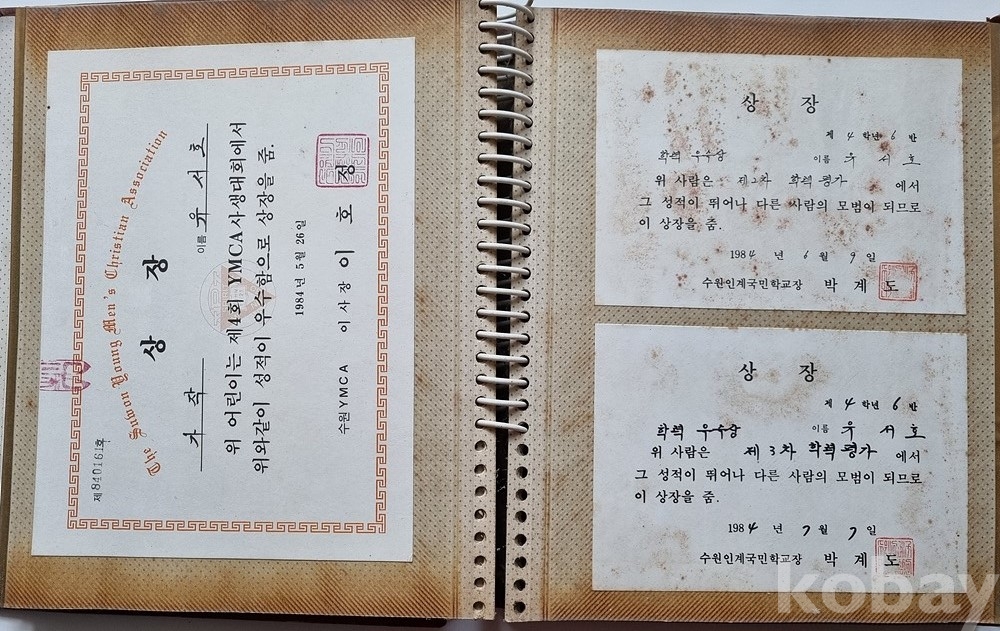 제840161호
The Suwon Young Men's Christian Association
상 장
가 작
이름 유 서 호
위 어린이는 제4회 YMCA사생대회에서
위와같이 성적이 우수함으로 상장을 줌.
1984년 5월 26일
수원YMCA 이사장 이 호 정
상 장
제 4 학년 6 반
학력 우수상 이름 유 서 호
위 사람은 제2차 학력평가 에서
그 성적이 뛰어나 다른 사람의 모범이 되므로
이 상장을 줌.
1984 년 6 월 9 일
수원인계국민학교장 박 계 도
상 장
제 4 학년 6 반
학력 우수상 이름 유 서 호
위 사람은 제3차 학력평가 에서
그 성적이 뛰어나 다른 사람의 모범이 되므로
이 상장을 줌.
1984 년 7 월 7 일
수원인계국민학교장 박 계 도
kobay